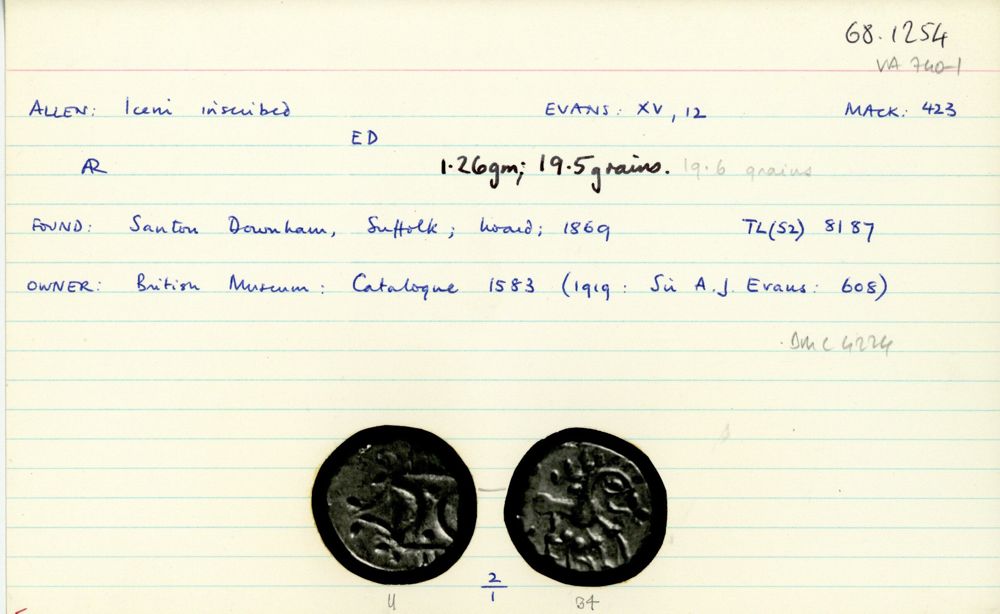 68.1254
VA 740-1
ALLEN: Iceni inscribed EVANS: XV, 12 MACK: 423
ED
AR 1.26gm; 19.5grains. 19.6 grains
FOUND: Santon Downham, Suffolk; hoard; 1869 TL(52) 8187
OWNER: British Museum: Catalogue 1583 (1919: Sir A.J. Evans: 608)
BMC 4224
2
1
4 34